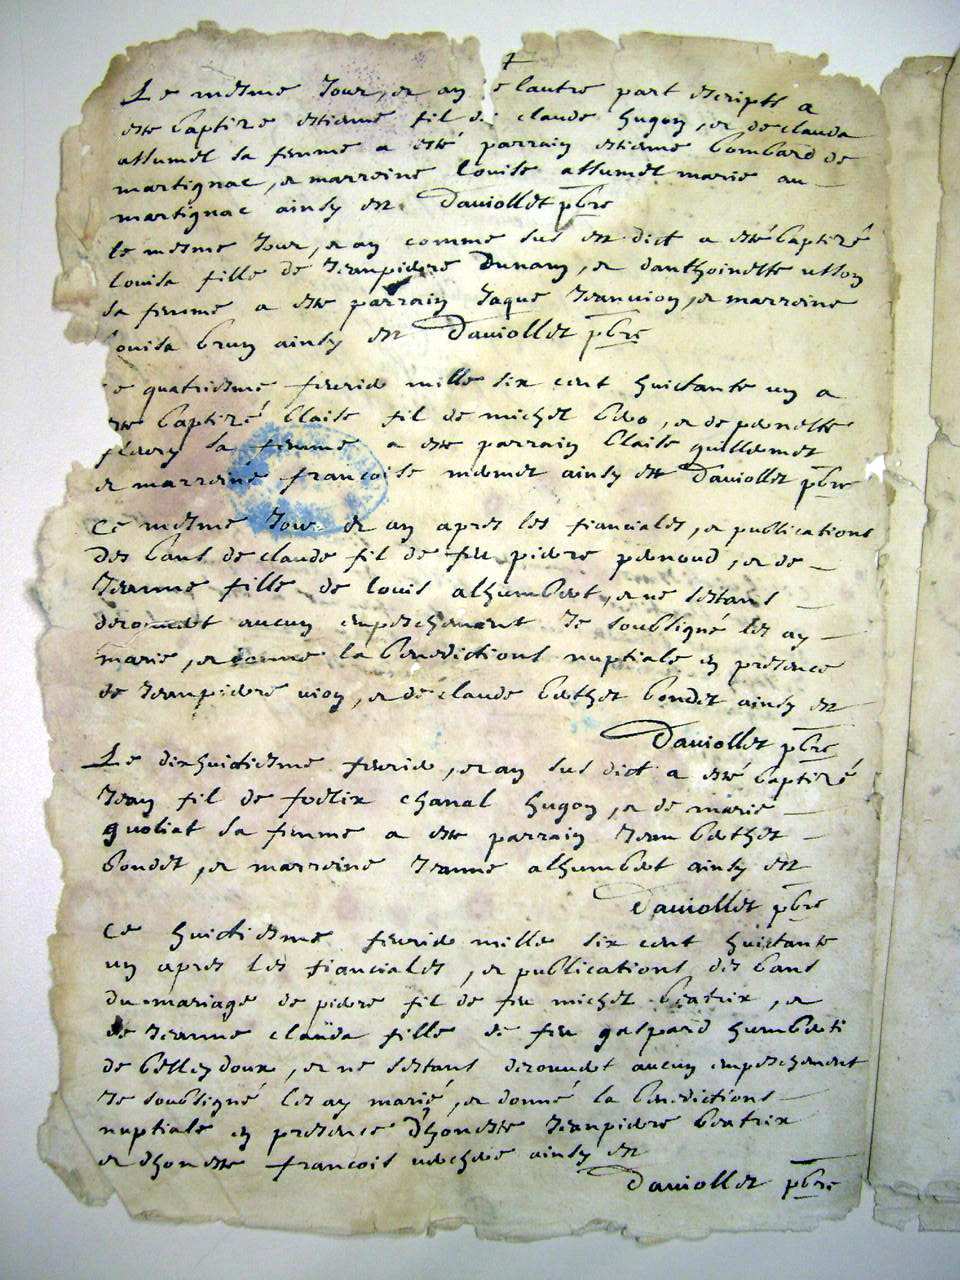 Le mesme Jour, et an e lautre part escripts a
este baptize estienne fil de claude hugon, et de clauda
allumel sa femme a esté parrain estienne bombard de
martignac, et marreine louise allumel marie au
martignac ainsy est Dauiollet pbre
le mesme Jour, et an comme sus est dict a esté baptizé
louisa fille de Jeanpierre Dunan, et danthoinette
sa femme a este parrain Jaque Jeanvion, et marreine
louisa brun ainsy est Dauiollet pbre
Le quatriesme feurier mille six cent huictante un a
este baptizé Claise fil de michel, et de pernette
fleury sa femme a este parrain Claise guillermet
et marreine francoise mermet ainsy est Dauiollet pbre
Ce mesme Jour et an apres les fianciales, et publications
des bans de claude fil de feu pierre pernoud, et de
Jeanne fille de louis alhumbert, et ne sestans
descouuert aucun empeschement Je soubsigné les ay
marie, et donne la benedictions nuptiale en presence
de Jeanpierre uion, et de claude berthet bondet ainsy est
Dauiollet pbre
Le dixhuictiesme feurier, et an sus dict a esté baptizé
Jean fil de foelix chanal hugon, et de marie
guoliat sa femme a este parrain Jean berthet
bondet, et marreine Jeanne alhumbert ainsy est
Dauiollet pbre
Ce huictiesme feurier mille six cent huictante
un apres les fiancialles, et publications des bans
du mariage de pierre fil de feu michel beatrix, et
de Jeanne claüda fille de feu gaspard humberti
de belleydoux, et ne sestans descouuert aucun empeschement
Je soubsigné les ay marié, et donné la benedictions
nuptiale en presence dhoneste Jeanpierre beatrix
et dhoneste francois uerchere ainsy est
Dauiollet pbre